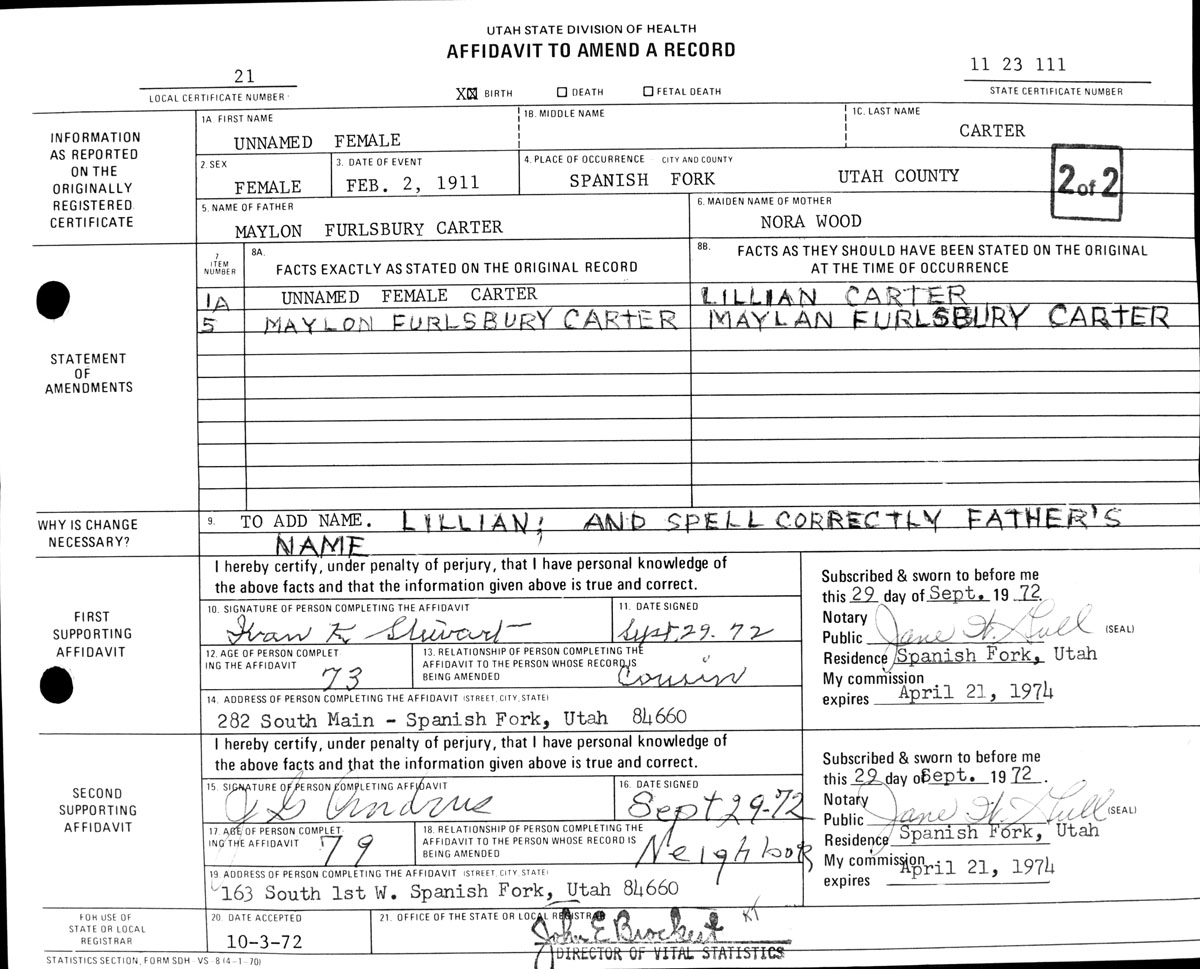 UTAH STATE DIVISION OF HEALTH
AFFIDAVIT TO AMEND A RECORD
21
LOCAL CERTIFICATE NUMBER
X☒ BIRTH ☐ DEATH ☐ FETAL DEATH
11 23 111
STATE CERTIFICATE NUMBER
INFORMATION
AS REPORTED
ON THE
ORIGINALLY
REGISTERED
CERTIFICATE
1A. FIRST NAME
UNNAMED FEMALE
1B. MIDDLE NAME
1C. LAST NAME
CARTER
2. SEX
FEMALE
3. DATE OF EVENT
FEB. 2, 1911
4. PLACE OF OCCURRENCE CITY AND COUNTY
SPANISH FORK UTAH COUNTY
2 of 2
5. NAME OF FATHER
MAYLON FURLSBURY CARTER
6. MAIDEN NAME OF MOTHER
NORA WOOD
STATEMENT
OF
AMENDMENTS
7
ITEM
NUMBER
8A.
FACTS EXACTLY AS STATED ON THE ORIGINAL RECORD
8B. FACTS AS THEY SHOULD HAVE BEEN STATED ON THE ORIGINAL
AT THE TIME OF OCCURRENCE
1A UNNAMED FEMALE CARTER LILLIAN CARTER
5 MAYLON FURLSBURY CARTER MAYLAN FURLSBURY CARTER
WHY IS CHANGE
NECESSARY?
9. TO ADD NAME. LILLIAN; AND SPELL CORRECTLY FATHER'S
NAME
FIRST
SUPPORTING
AFFIDAVIT
I hereby certify, under penalty of perjury, that I have personal knowledge of
the above facts and that the information given above is true and correct.
10. SIGNATURE OF PERSON COMPLETING THE AFFIDAVIT
Ivan K. Stewart
11. DATE SIGNED
Sept 29. 72
12. AGE OF PERSON COMPLET-
ING THE AFFIDAVIT
73
13. RELATIONSHIP OF PERSON COMPLETING THE
AFFIDAVIT TO THE PERSON WHOSE RECORD IS
BEING AMENDED
Cousin
14. ADDRESS OF PERSON COMPLETING THE AFFIDAVIT (STREET, CITY, STATE)
282 South Main - Spanish Fork, Utah 84660
Subscribed & sworn to before me
this 29 day of Sept. 19 72
Notary
Public Jane H. Gull (SEAL)
Residence Spanish Fork, Utah
My commission
expires April 21, 1974
SECOND
SUPPORTING
AFFIDAVIT
I hereby certify, under penalty of perjury, that I have personal knowledge of
the above facts and that the information given above is true and correct.
15. SIGNATURE OF PERSON COMPLETING AFFIDAVIT
Andrus
16. DATE SIGNED
Sept 29-72
17. AGE OF PERSON COMPLET-
ING THE AFFIDAVIT
79
18. RELATIONSHIP OF PERSON COMPLETING THE
AFFIDAVIT TO THE PERSON WHOSE RECORD IS
BEING AMENDED
Neighbor
19. ADDRESS OF PERSON COMPLETING THE AFFIDAVIT (STREET, CITY, STATE)
163 South 1st W. Spanish Fork, Utah 84660
Subscribed & sworn to before me
this 29 day of Sept. 19 72.
Notary
Public Jane H. Gull (SEAL)
Residence Spanish Fork, Utah
My commission
expires April 21, 1974
FOR USE OF
STATE OR LOCAL
REGISTRAR
20. DATE ACCEPTED
10-3-72
21. OFFICE OF THE STATE OR LOCAL REGISTRAR
John E Brockert
DIRECTOR OF VITAL STATISTICS
STATISTICS SECTION, FORM SDH - VS - 8 (4-1-70)